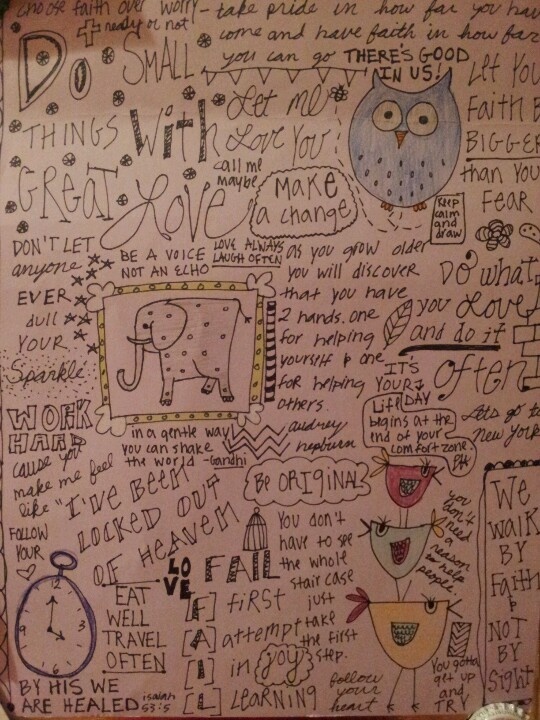 choose faith over worry
ready or not
take pride in how far you have
come and have faith in how far
you can go
THERE'S GOOD
IN US!
Do SMALL
THINGS With
GREAT Love
Let me
Love You
call me
maybe
Make
a change
Let You
Faith B
BIGGER
than You
FEAR
KEEP
calm
and
draw
DON'T LET
anyone
EVER
dull
YOUR
Sparkle
BE A VOICE
NOT AN ECHO
LOVE ALWAYS
LAUGH OFTEN
as you grow older
you will discover
that you have
2 hands. one
for helping
yourself & one
for helping
others.
audrey
hepburn
DO what
you Love
and do it
often
IT'S
YOUR
DAY
Life
begins at the
end of your
comfort zone.
Lets go to
new York
in a gentle way
you can shake
the world -Gandhi
WORK
HARD
cause you
make me feel
like "I'VE BEEN
LOCKED OUT
OF HEAVEN
BE ORIGINAL
FOLLOW
YOUR
12
3
6
9
LO
VE
EAT
WELL
TRAVEL
OFTEN
BY HIS WE
ARE HEALED
isaiah
53:5
FAIL
[F] first
[A] attempt
[I] in
[L] LEARNING
You don't
have to see
the whole
stair case
just
take
the first
step.
joy
follow
your
heart
you
don't
need
a reason
to help
people.
You gotta
get up
and
TRY
We
walk
BY
Faith
&
NOT
BY
Sight